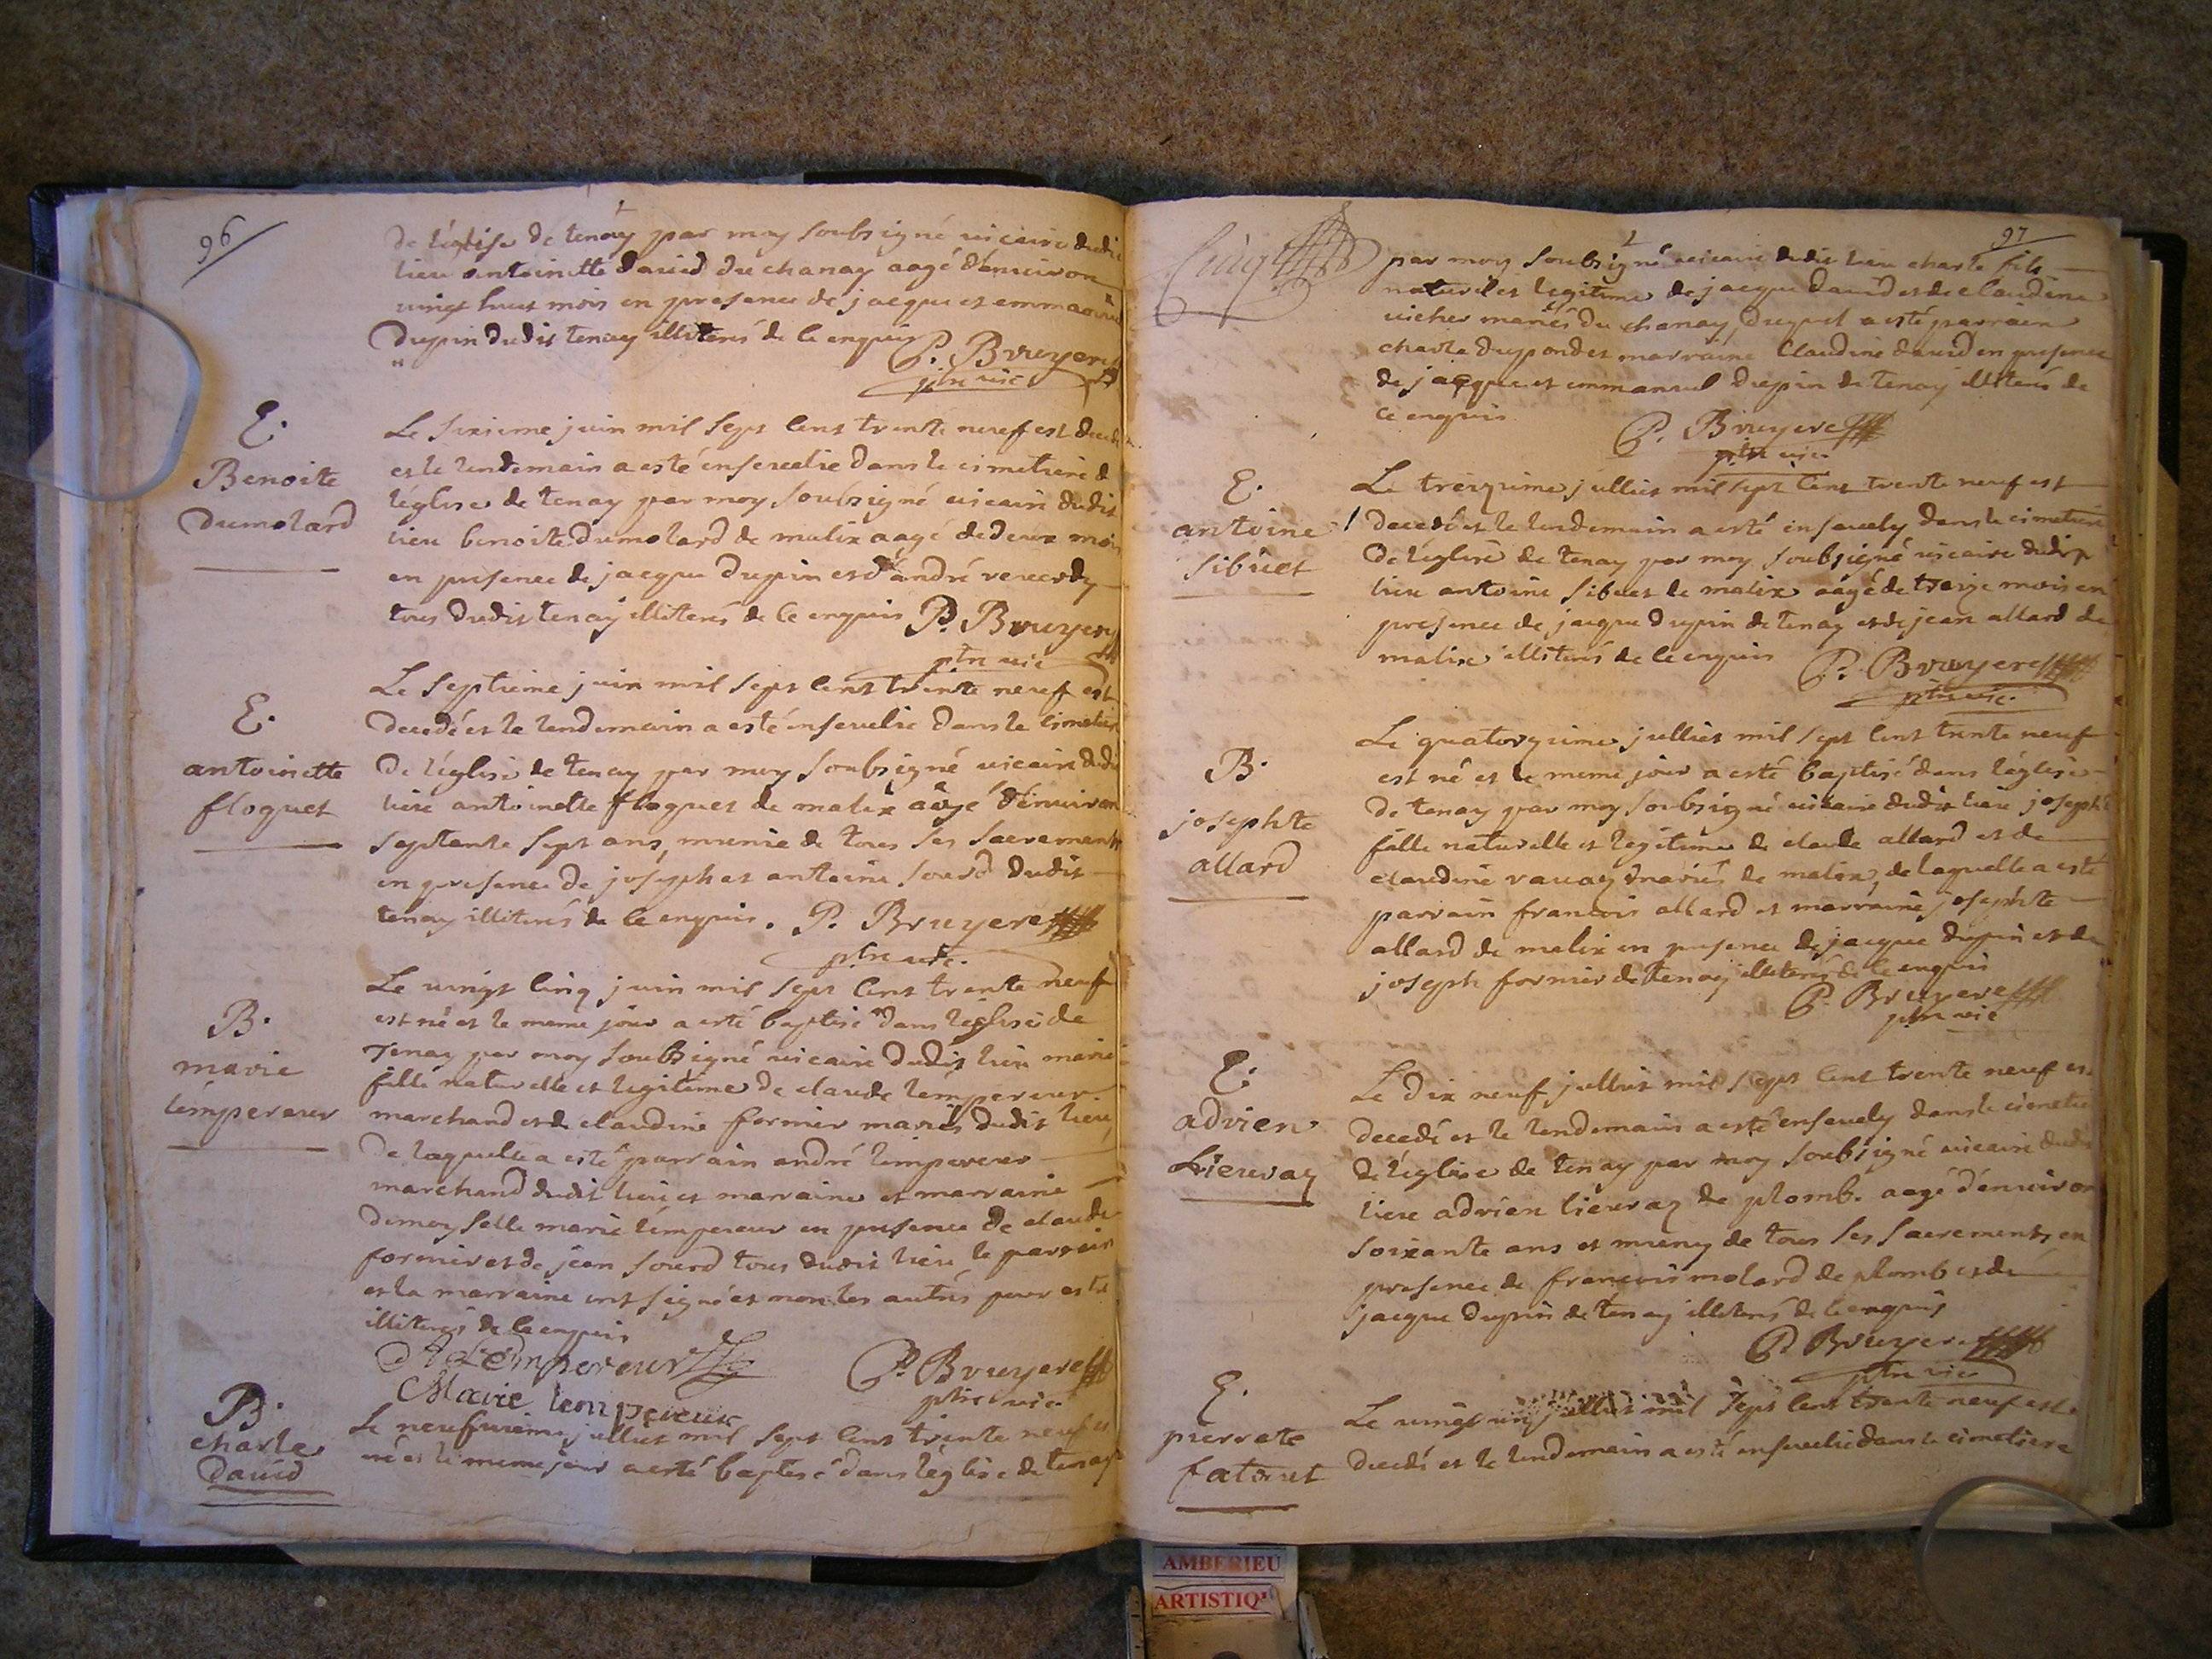 96
de l'église de tenay par moy soubsigné vicaire dudit
lieu antoinette david du chanay aagé d'environ
vingt huit mois en presence de jacque et emmanuel
dupin dudit tenay illiterés de ce enquis P. Bruyere
ptre vic
E.
Benoite
Dumolard
Le sixieme juin mil sept cent trente neuf est decedé
et le lendemain a esté ensevelie dans le cimetiere de
l'églize de tenay par moy soubsigné vicaire dudit
lieu benoite dumolard de malix aagé de deux mois
en presence de jacque dupin et d'andré
tous dudit tenay illiterés de ce enquis P. Bruyere
ptre vic
E.
antoinette
floquet
Le septieme juin mil sept cent trente neuf est
decedé et le lendemain a esté ensevelie dans le cimetiere
de l'église de tenay par moy soubsigné vicaire dudit
lieu antoinette floquet de malix aagé d'environ
septante sept ans, munie de tous ses sacrements
en presence de joseph et antoine sourd dudit
tenay illiterés de ce enquis. P. Bruyere
ptre vic.
B.
marie
lempereur
Le vingt cinq juin mil sept cent trente neuf
est né et le meme jour a esté baptisé dans l'église de
Tenay par moy soubsigné vicaire dudit lieu marie
fille naturelle et legitime de claude lempereur
marchand et de claudine formier mariés dudit lieu,
de laquelle a esté parrain andré lempereur
marchand dudit lieu et marraine et marraine
demoyselle marie lempereur en presence de claude
formier et de jean sourd tous dudit lieu, le parrain
et la marraine ont signé et non les autres pour estre
illiterés de ce enquis
A Lempereur P. Bruyere
Marie lempereur ptre vic.
B.
charle
David
Le neufvieme juillet mil sept cent trente neuf est
né et le meme jour a esté baptisé dans l'église de tenay
97
Cinq
par moy soubsigné vicaire dudit lieu charle fils
naturel et legitime de jacque david et de claudine
vicher mariés du chanay, duquel a esté parrain
charle dupond et marraine Claudine david en presence
de jacque et emmanuel dupin de tenay illiterés de
ce enquis P. Bruyere
ptre vic.
E.
antoine
sibuet
Le treizieme juillet mil sept cent trente neuf est
decedé et le lendemain a esté ensevely dans le cimetiere
de l'église de tenay par moy soubsigné vicaire dudit
lieu antoine sibuet de malix aagé de treize mois en
presence de jacque dupin de tenay et de jean allard de
malix illiterés de ce enquis P. Bruyere
ptre vic.
B.
josephte
allard
Le quatorzieme juillet mil sept cent trente neuf
est né et le meme jour a esté baptisé dans l'église
de tenay par moy soubsigné vicaire dudit lieu josephte
fille naturelle et legitime de claude allard et de
claudine mariés de malix, de laquelle a esté
parrain francois allard et marraine josephte
allard de malix en presence de jacque dupin et de
joseph formier de tenay illiterés de ce enquis
P. Bruyere
ptre vic
E.
adrien
Lieuvraz
Le dix neuf juillet mil sept cent trente neuf est
decedé et le lendemain a esté ensevely dans le cimetiere
de l'églize de tenay par moy soubsigné vicaire dudit
lieu adrien lieuvraz de plomb. aagé d'environ
soixante ans et muny de tous ses sacrements en
presence de francois molard de plomb et de
jacque dupin de tenay illiterés de ce enquis
P. Bruyere
ptre vic
E.
pierrete
fatouet
Le vingt un juillet mil sept cent trente neuf est
decedé et le lendemain a esté ensevelie dans le cimetiere
AMBERIEU
ARTISTIQ'